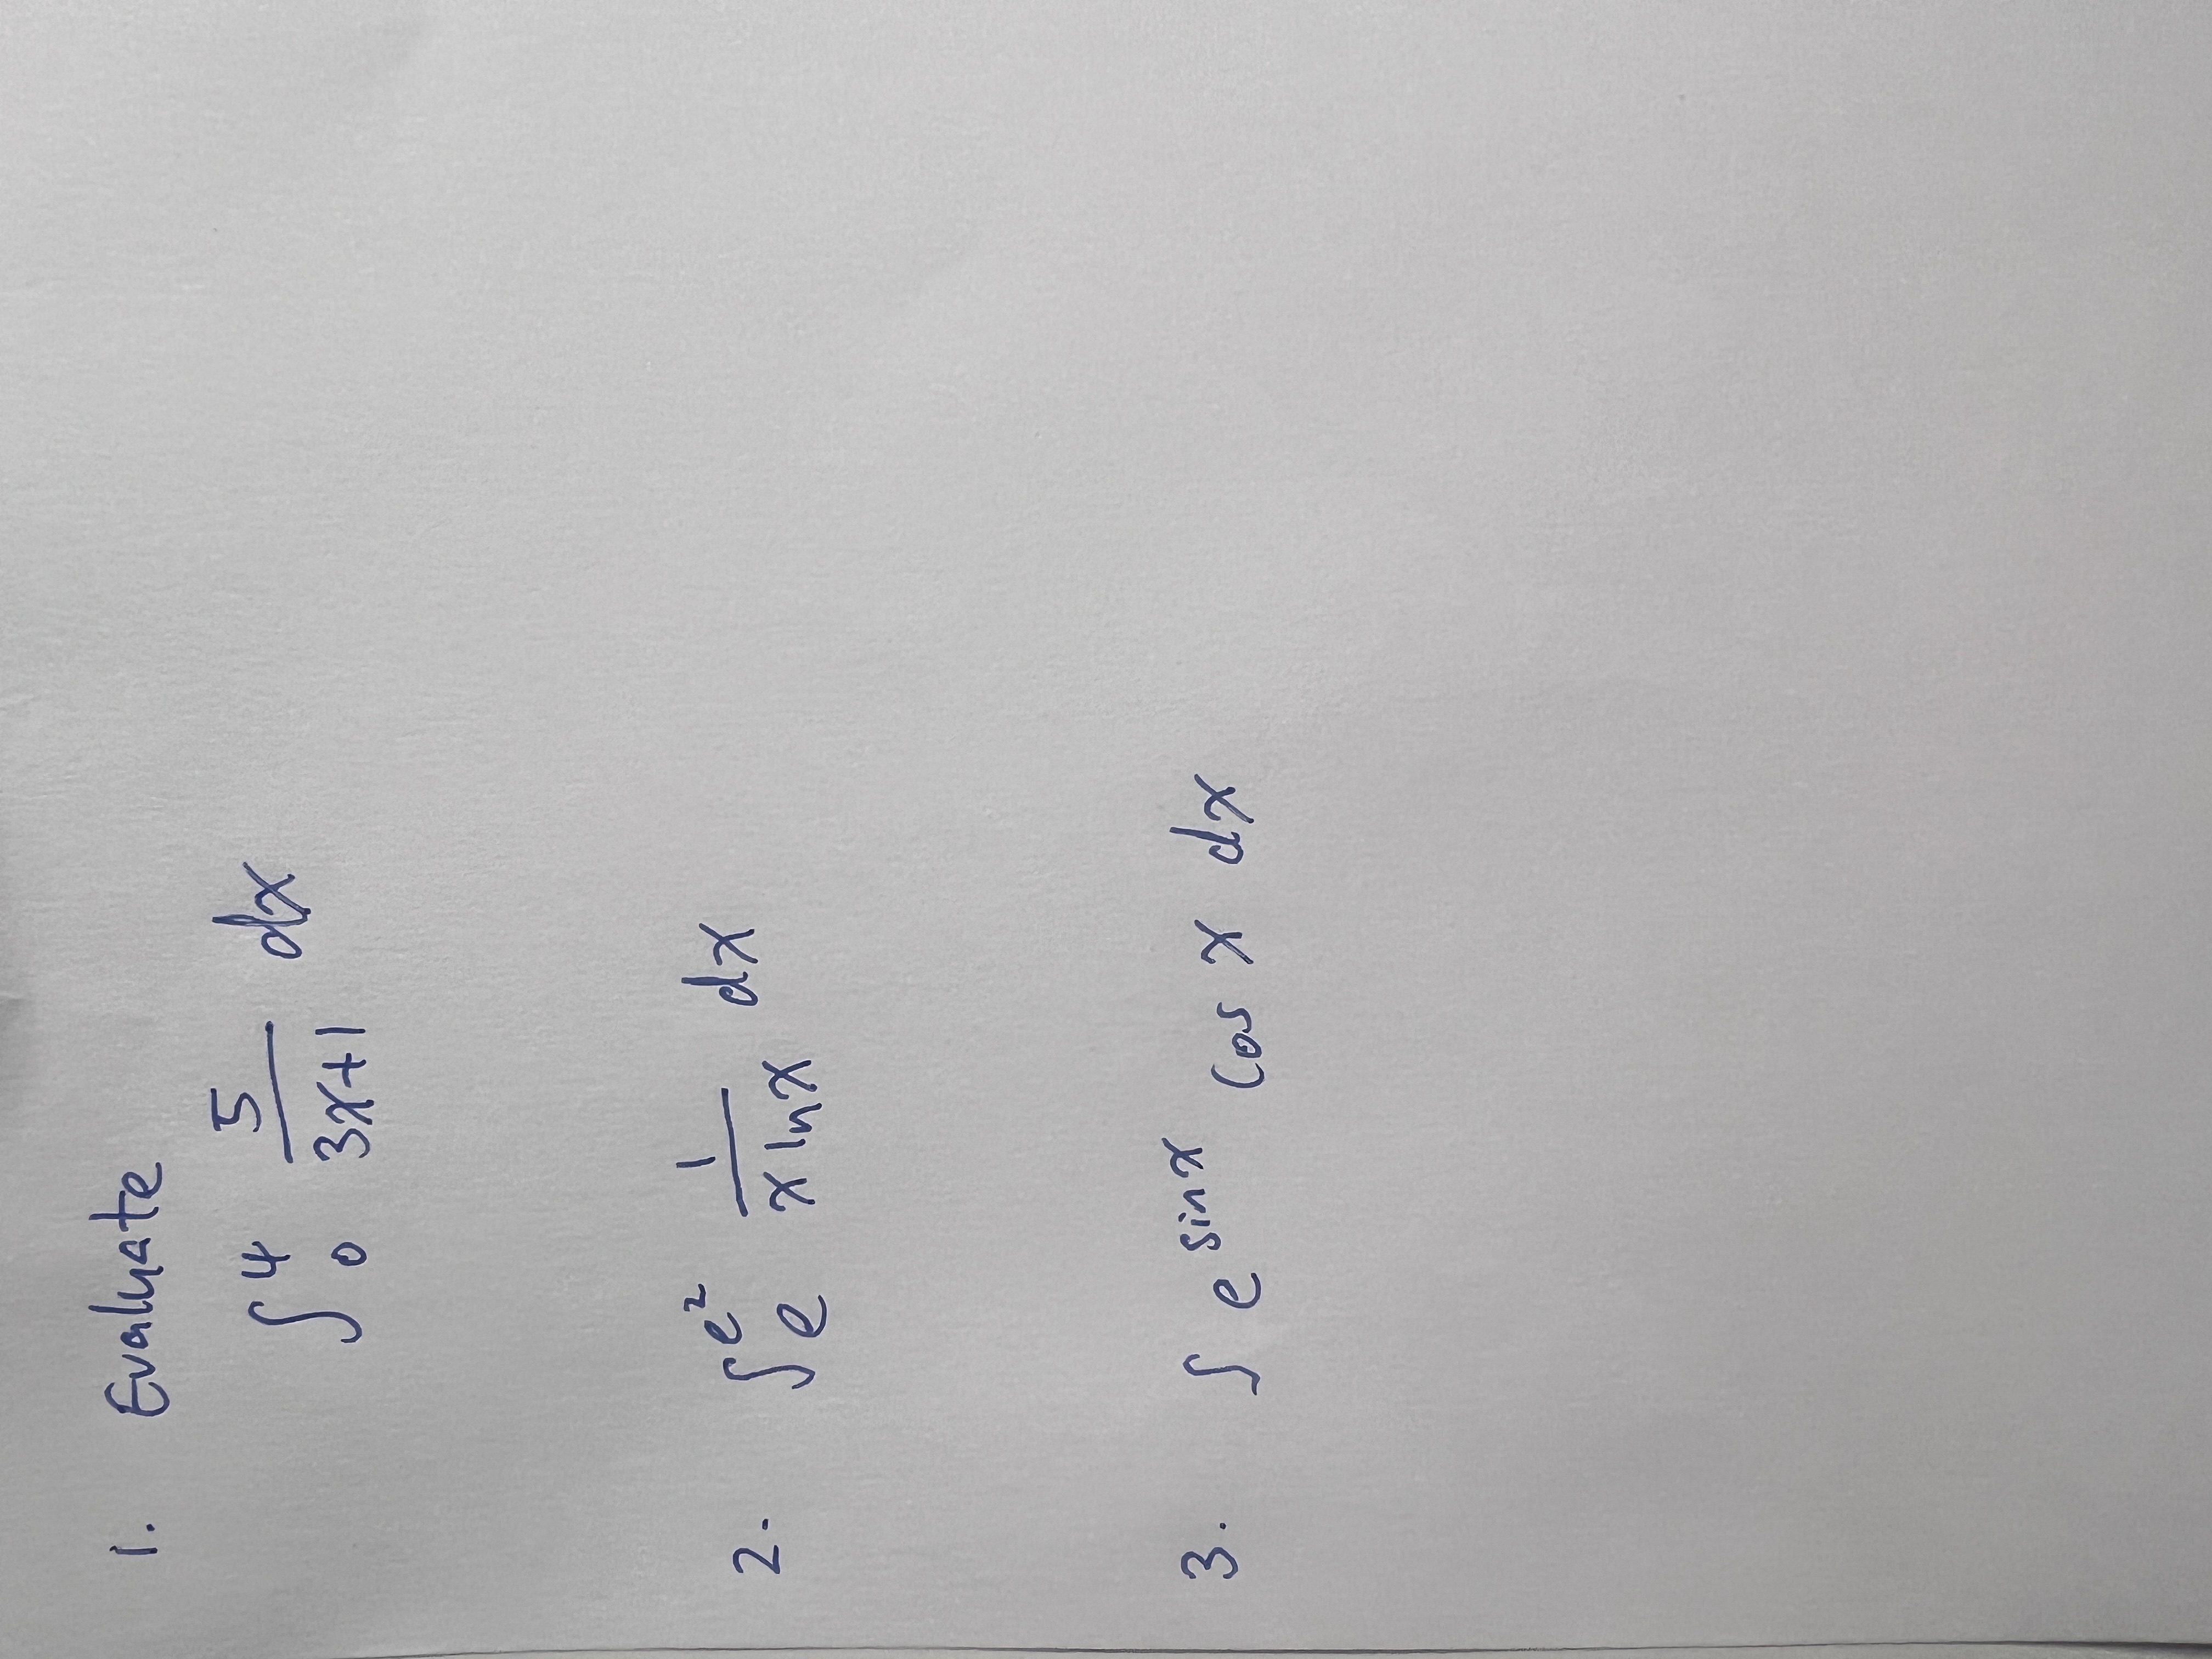 1. Evaluate
∫₀⁴ 5/(3x+1) dx
2. ∫ₑᵉ² 1/(x ln x) dx
3. ∫ e^(sin x) cos x dx